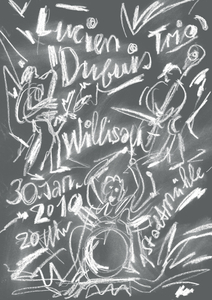 Lucien Trio
Dubuis
Willisau
30. Jan.
2010
20 Uhr
Stadtmühle